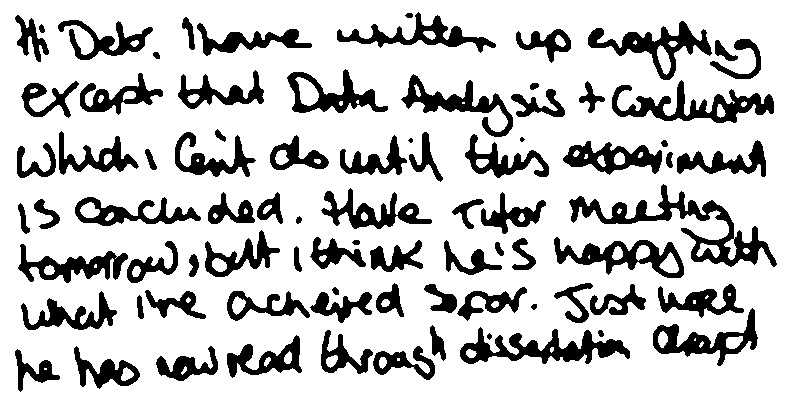 Hi Deb. I have written up everything
except that Data Analysis + Conclusion
which I can't do until this experiment
is concluded. Have Tutor meeting
tomorrow, but I think he's happy with
what I've acheived so far. Just hope
he has now read through dissertation draft